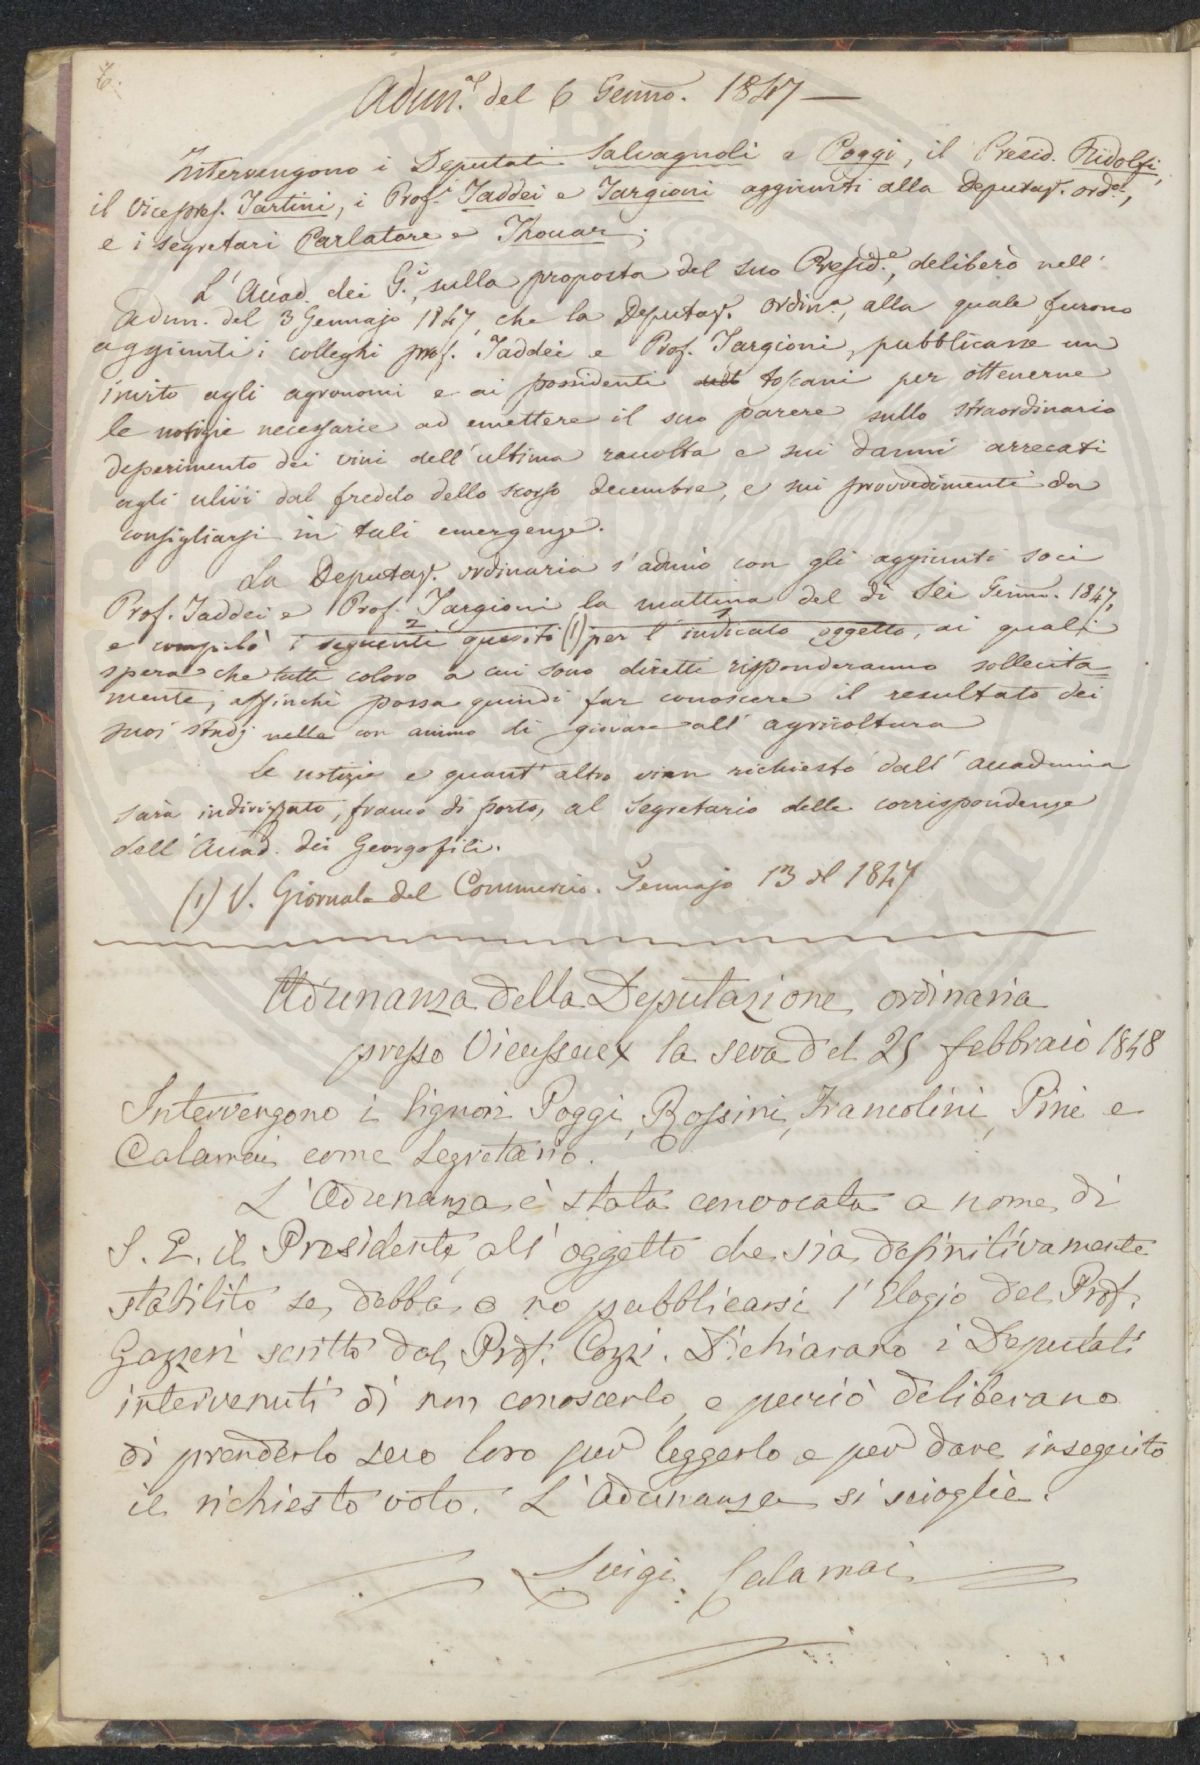 6.
Adun.ᵃ del 6 Genno. 1847 —
Intervengono i Deputati Salvagnoli e Poggi, il Presid. Ridolfi,
il Vicepres. Tartini, i Prof.ⁱ Taddei e Targioni aggiunti alla Deputaz. ord.ᵃ,
e i segretari Parlatore e Thouar;
L'Accad. dei G.ⁱ, sulla proposta del suo Presid.ᵉ, deliberò nell'
Adun. del 3 Gennajo 1847, che la Deputaz. ordin.ᵃ, alla quale furono
aggiunti i colleghi prof. Taddei e Prof. Targioni, pubblicasse un
invito agli agronomi e ai possidenti toscani per ottenerne
le notizie necessarie ad emettere il suo parere sullo straordinario
deperimento dei vini dell'ultima raccolta e sui danni arrecati
agli ulivi dal freddo dello scorso decembre, e sui provvedimenti da
consigliarsi in tali emergenze.
La Deputaz. ordinaria s'adunò con gli aggiunti soci
Prof. Taddei e Prof. Targioni la mattina del dì Sei Genno. 1847,
e compilò i seguenti quesiti (1) per l'indicato oggetto, ai quali
spera che tutti coloro a cui sono diretti risponderanno sollecita
mente, affinchè possa quindi far conoscere il resultato dei
suoi studj nelle con animo di giovare all'agricoltura
Le notizie e quant'altro vien richiesto dall'accademia
sarà indirizzato, franco di porto, al Segretario delle corrispondenze
dell'Accad. dei Georgofili.
(1) V. Giornale del Commercio. Gennajo 13 del 1847
Adunanza della Deputazione ordinaria
presso Vieusseux la sera del 25 febbraio 1848
Intervengono i Signori Poggi, Rossini, Francolini, Pini e
Calamai come Segretario.
L'Adunanza è stata convocata a nome di
S. E. il Presidente, all'oggetto che sia definitivamente
stabilito se debba o no pubblicarsi l'Elogio del Prof.
Gazzeri scritto dal Prof. Cozzi. Dichiarano i Deputati
intervenuti di non conoscerlo, e perciò deliberano
di prenderlo seco loro per leggerlo e per dare inseguito
il richiesto voto. L'Adunanza si scioglie.
Luigi Calamai